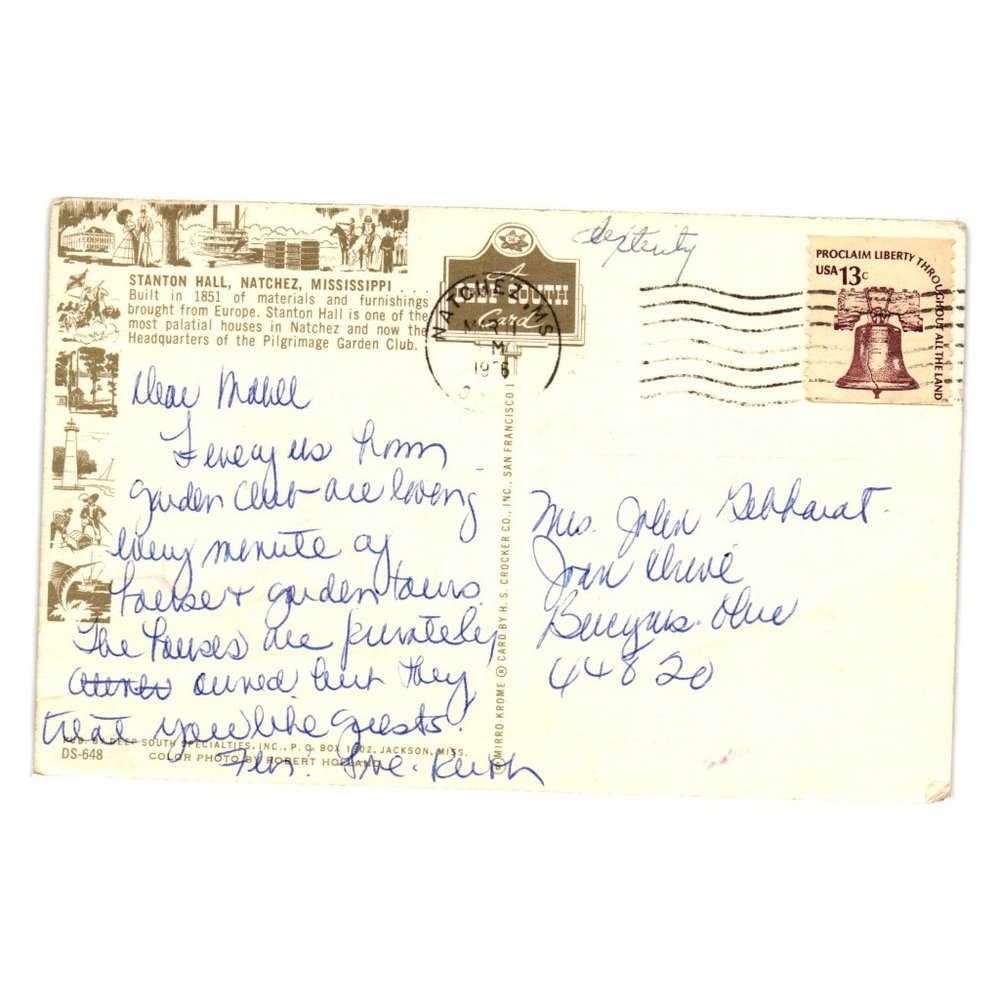 STANTON HALL, NATCHEZ, MISSISSIPPI . . . .
Built in 1851 of materials and furnishings
brought from Europe. Stanton Hall is one of the
most palatial houses in Natchez and now the
Headquarters of the Pilgrimage Garden Club.
A
DEEP SOUTH
Card
NATCHEZ, MS
1976
PROCLAIM LIBERTY THROUGHOUT ALL THE LAND
USA 13c
Dear
of us from
garden club are loving
every minute of
house & garden tours.
The houses are privately
owned but they
treat you like guests.
Love
PUB. BY DEEP SOUTH SPECIALTIES, INC., P. O. BOX 1702, JACKSON, MISS.
DS-648
COLOR PHOTO BY ROBERT HOLLAND
MIRRO-KROME ® CARD BY H. S. CROCKER CO., INC., SAN FRANCISCO
Mrs. John Gebhardt
Drive
Bucyrus Ohio
44820